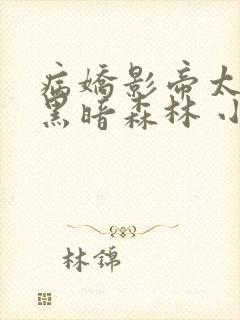 病嬌影帝太
黑暗森林 小
林錦